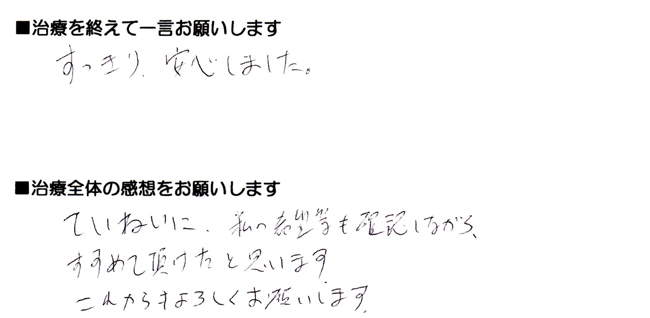 ■治療を終えて一言お願いします
すっきり、安心しました。
■治療全体の感想をお願いします
ていねいに、私の希望等も確認しながら、
すすめて頂けたと思います
これからもよろしくお願いします